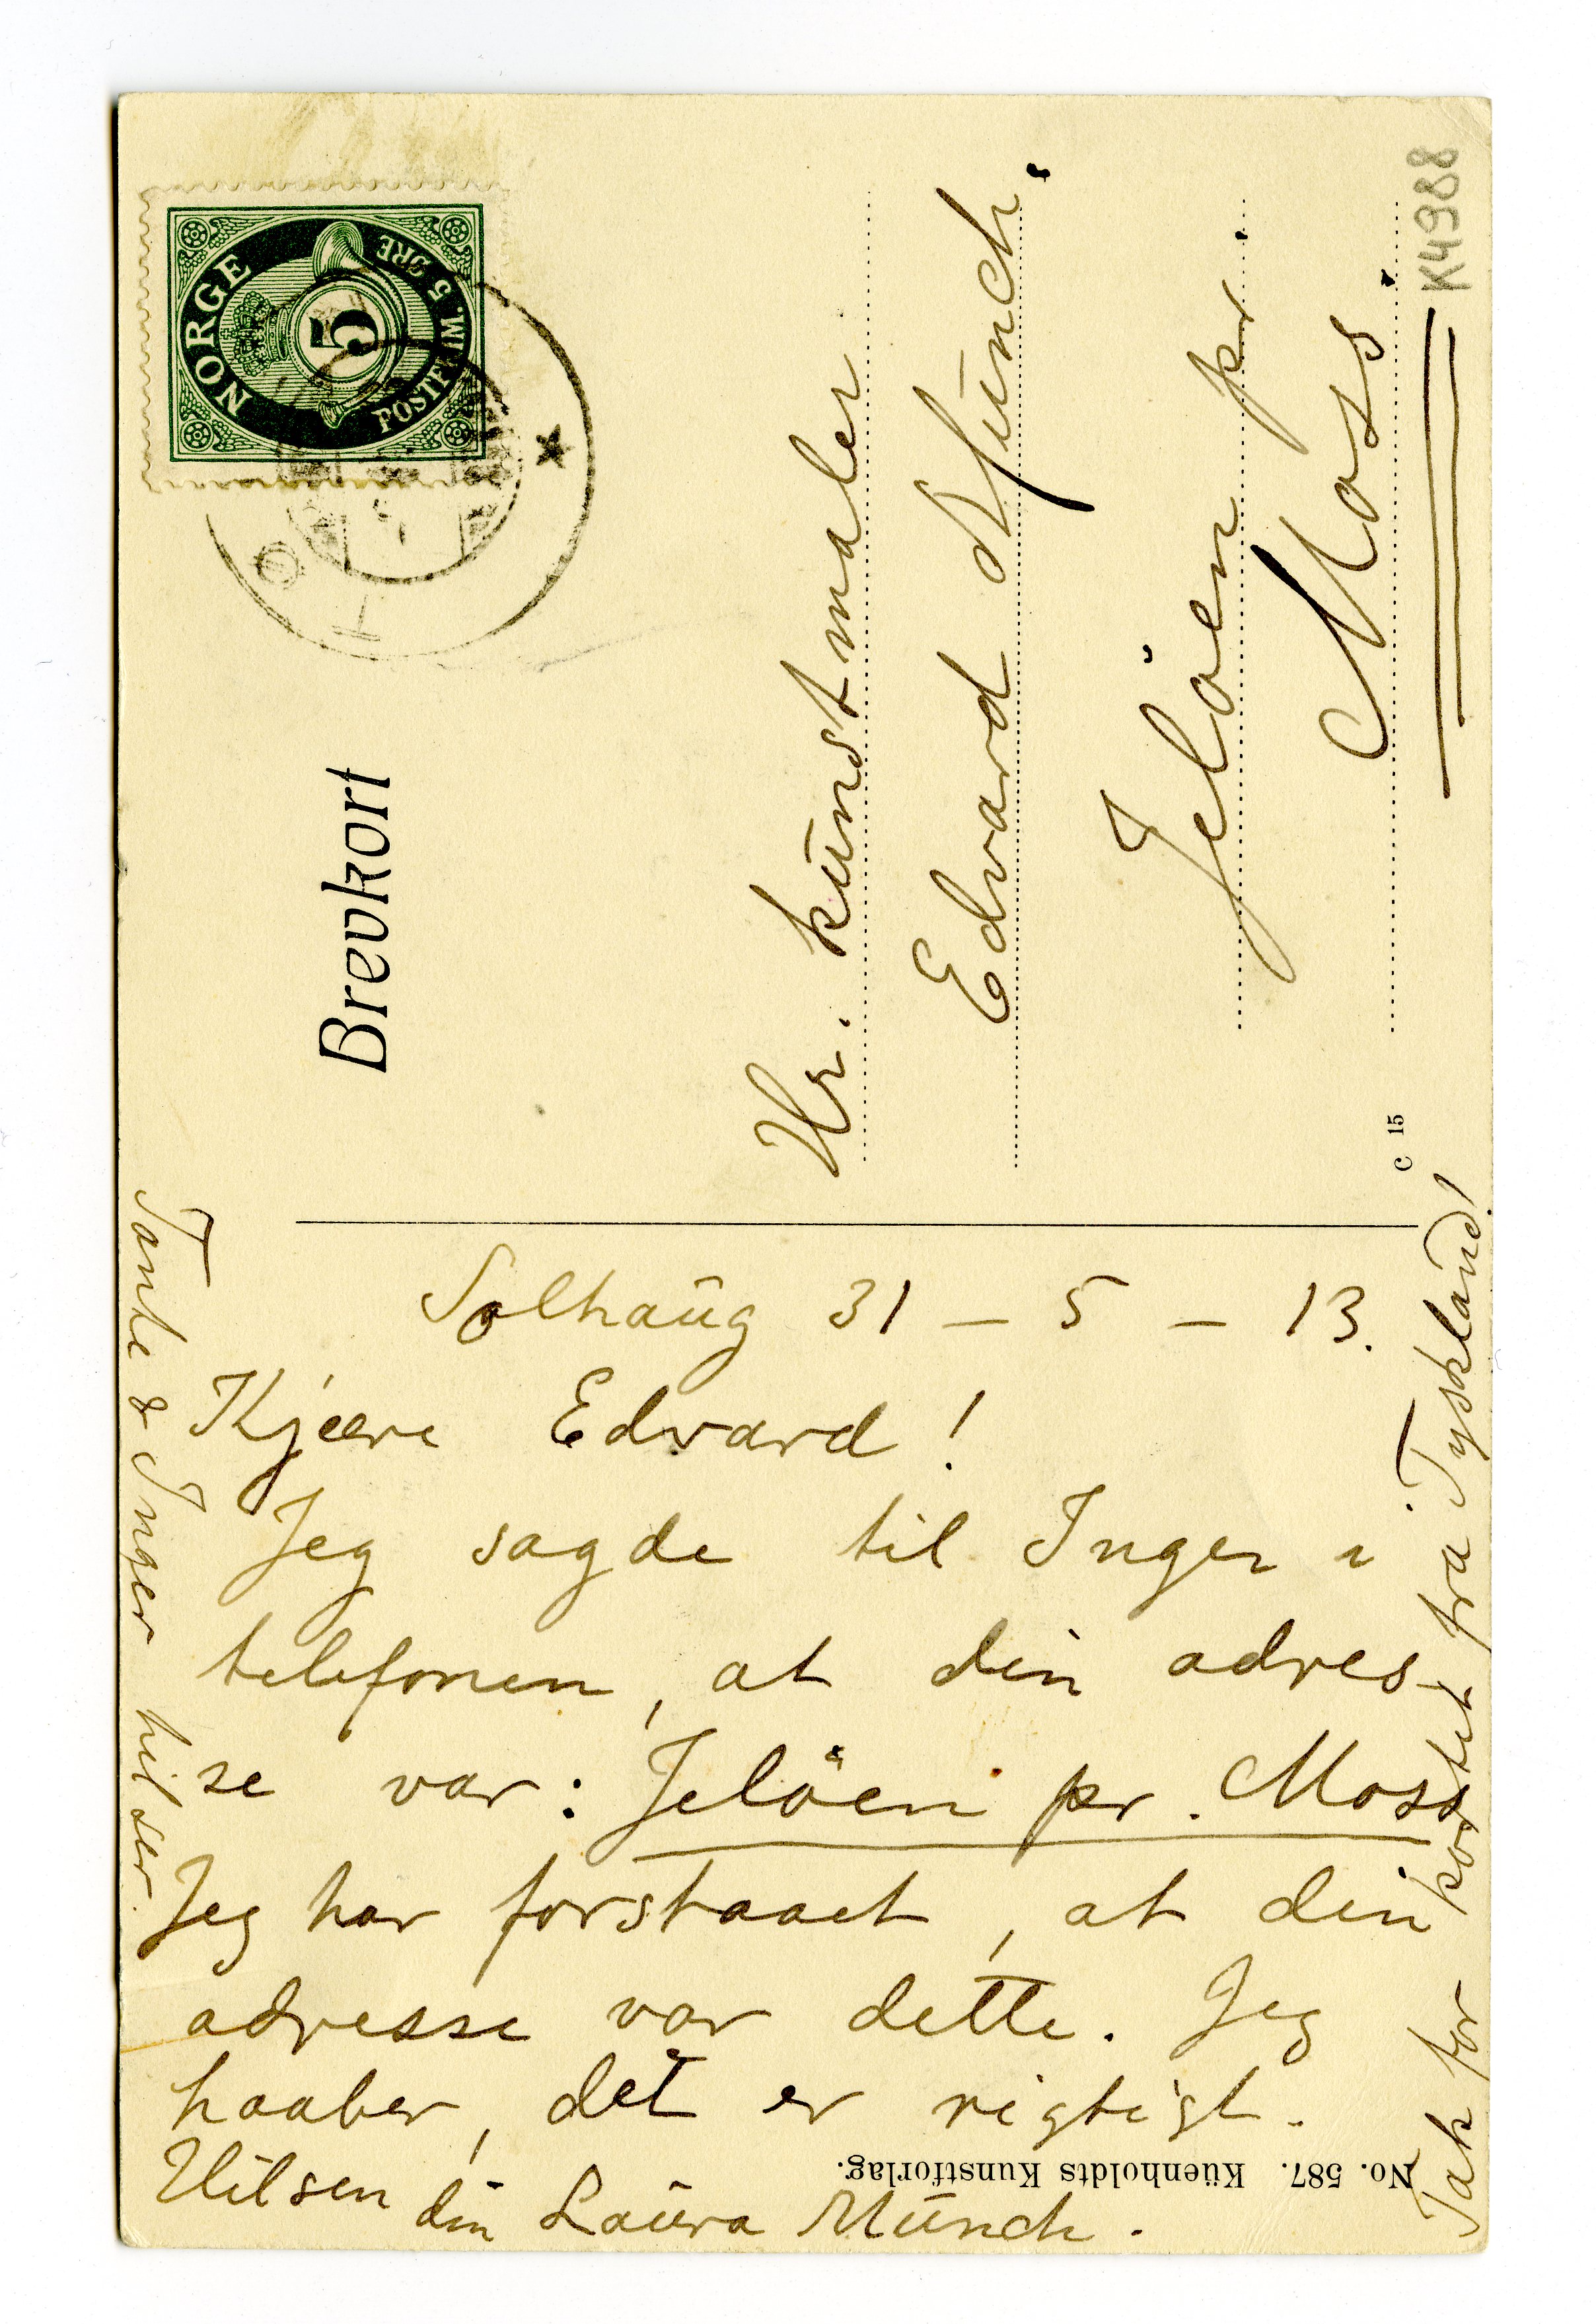 K4988
NORGE
5
POSTFRIM. 5 ØRE
Brevkort
Hr. kunstmaler
Edvard Munch.
Jelöen pr.
Moss.
C 15
Solhaug 31 – 5 – 13.
Kjære Edvard!
Jeg sagde til Inger i
telefonen, at din adres-
se var: Jelöen pr. Moss
Jeg har forstaaet, at din
adresse var dette. Jeg
haaber, det er rigtigt.
Hilsen din Laura Munch.
Tak for kortet fra Tyskland!
Tante & Inger hilser.
No. 587. Küenholdts Kunstforlag.